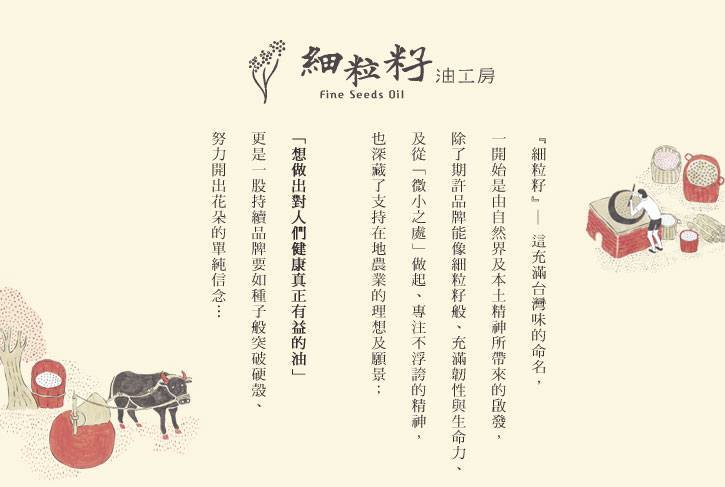 細粒籽油工房
Fine Seeds Oil
『細粒籽』— 這充滿台灣味的命名，
一開始是由自然界及本土精神所帶來的啟發，
除了期許品牌能像細粒籽般、充滿韌性與生命力、
及從「微小之處」做起、專注不浮誇的精神，
也深藏了支持在地農業的理想及願景；
「想做出對人們健康真正有益的油」
更是一股持續品牌要如種子般突破硬殼、
努力開出花朵的單純信念…